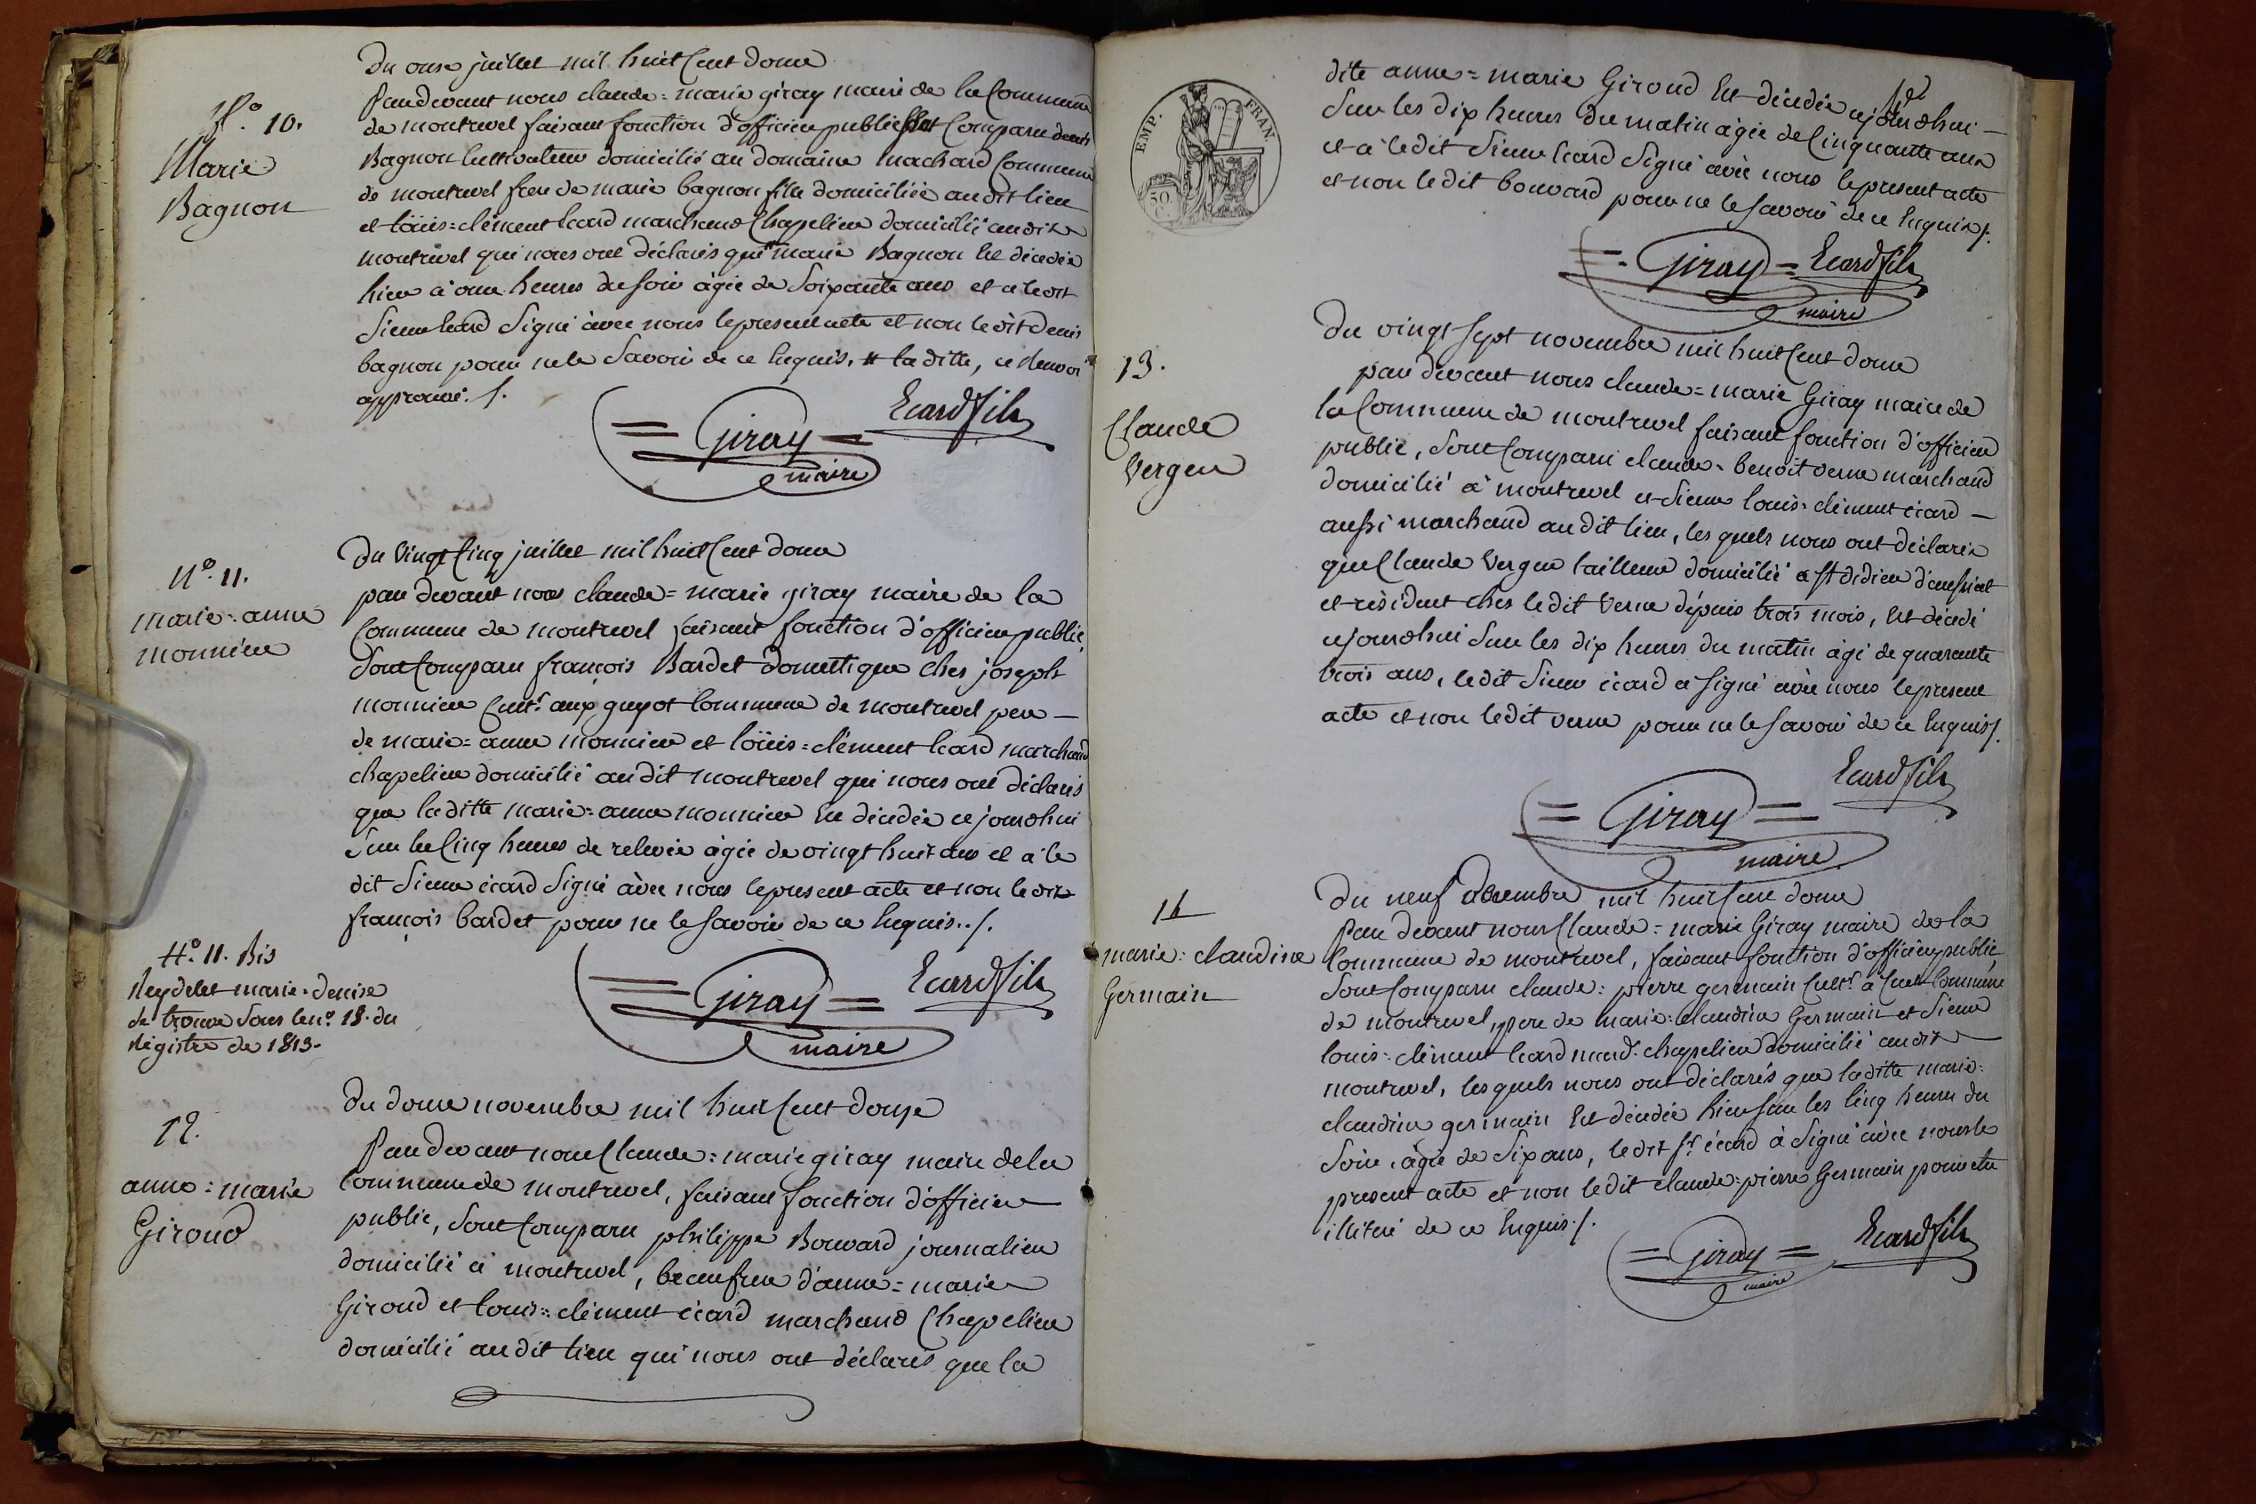 Du onze juillet mil huit Cent douze
N.o 10.
Marie
Bagnon
Pardevant nous claude=marie giray maire de la Commune
de montrevel faisant fonction d'officier public sont Comparu denis
Bagnon Cultivateur domicilié au domaine machard Commune
de montrevel frere de marie bagnon fille domiciliée au dit lieu
et loüis=clément Ecard marchand Chapelier domicilié au dit
montrevel qui nous ont déclarés que marie Bagnon Est décedée
hier à onze heures du soir âgée de Soixante ans et a ledit
Sieur Ecard Signé avec nous le present acte et non le dit denis
bagnon pour ne le Savoir de ce Enquis. # la ditte, ce renvoi
approuvé. /.
=Giray= Ecard fils
maire
Du Vingt Cinq juillet mil huit Cent douze
N.o 11.
marie=anne
monnier
par devant nous claude=marie giray maire de la
Commune de montrevel faisant fonction d'officier public,
Sont Comparu françois Bardet domestique Chez joseph
monnier Cult.r aux guyot Commune de montrevel pere —
de marie=anne monnier et loüis=clément Ecard marchand
chapelier domicilié au dit montrevel qui nous ont déclarés
que la ditte marie=anne monnier Est décedée ce jourdhui
Sur les Cinq heures de relevée âgée de vingt huit ans et a le
dit Sieur écard Signé avec nous le present acte et non le dit
françois bardet pour ne le Savoir de ce Enquis../.
=Giray= Ecard fils
maire
N.o 11. Bis
Neydelet marie-denise
se trouve sous le n.o 18. du
Registre de 1813.
Du douze novembre mil huit Cent douze
12.
anne=marie
Giroud
Par devant nous Claude=marie giray maire de la
Commune de montrevel, faisant fonction d'officier
public, Sont Comparu philippe Bouvard journalier
domicilié à montrevel, beaufrere d'anne=marie
Giroud et louis=clément écard marchand Chapelier
domicilié au dit lieu qui nous ont déclarés que la
EMP. FRAN.
50 C.
dite anne=marie Giroud Est décedée cejourdhui —
Sur les dix heures du matin âgée de Cinquante ans
et a ledit Sieur Ecard Signé avec nous le present acte
et non le dit bouvard pour ne le Savoir de ce Enquis /.
=Giray= Ecard fils
maire
Du vingt Sept novembre mil huit Cent douze
13.
Claude
Verger
par devant nous claude=marie Giray maire de
la Commune de montrevel faisant fonction d'officier
public, Sont Comparu claude=benoit verne marchand
domicilié à montrevel et Sieur louis=clément écard —
aussi marchand au dit lieu, les quels nous ont déclarés
que Claude Verger tailleur domicilié a St didier d'aussiat
et résident chez ledit Verne dépuis trois mois, Est décedé
cejourdhui Sur les dix heures du matin âgé de quarante
trois ans, ledit Sieur écard a signé avec nous le present
acte et non ledit verne pour ne le Savoir de ce Enquis /.
=Giray= Ecard fils
maire
Du neuf décembre mil huit Cent douze
14
marie=claudine
Germain
Par devant nous Claude=marie Giray maire de la
Commune de montrevel, faisant fonction d'officier public
Sont Comparu claude=pierre germain Cult.r à Cuet Commune
de montrevel, pere de marie=claudine Germain et Sieur
louis=clément Ecard mard. chapelier domicilié au dit
montrevel, les quels nous ont déclarés que la ditte marie=
claudine germain Est décedée hier sur les Cinq heures du
Soir, agée de Six ans, le dit Sr. écard a Signé avec nous le
present acte et non le dit claude=pierre Germain pour etre
illitéré de ce Enquis /.
=Giray= Ecard fils
maire